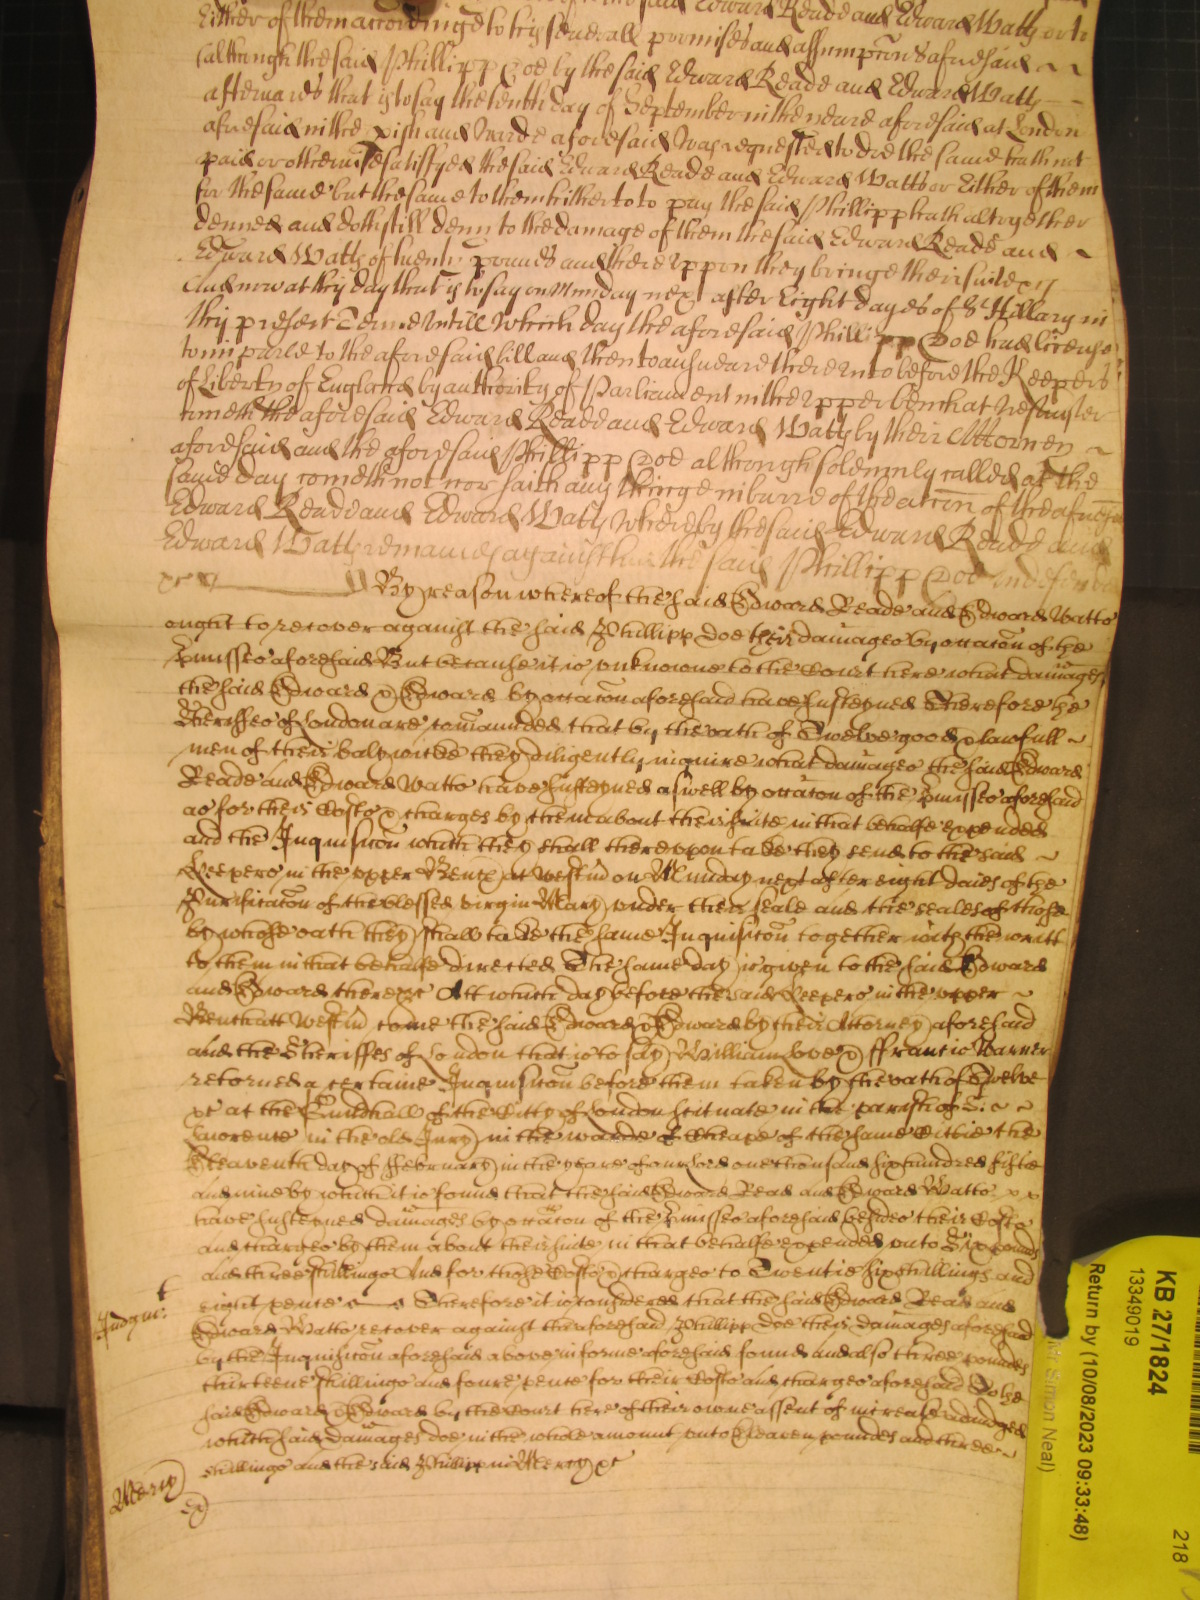 said Edward Reade and Edward Watts or to
Either of them accordinge to his severall promises and assumpcons aforesaid
(although the said Phillipp Doe by the said Edward Reade and Edward Watts
afterwards that is to say the tenth day of September in the yeare aforesaid at London
aforesaid in the pish and Warde aforesaid was requested to doe the same hath not
paid or otherwise satisfyed the said Edward Reade and Edward Watts or Either of them
for the same but the same to them hitherto to pay the said Phillipp hath altogether
denied and doth still deny to the damage of them the said Edward Reade and
Edward Watts of twenty pounds and thereuppon they bringe their suite &c
And now at this day that is to say on Munday next after Eight dayes of St Hillary in
this present Terme untill which day the aforesaid Phillipp Doe had license
to imparle to the aforesaid bill and then to answeare thereunto before the Keepers
of Liberty of England by authority of Parliament in the upper bench at Westminster
cometh the aforesaid Edward Reade and Edward Watts by their Attorney
aforesaid and the aforesaid Phillipp Doe although solemnly called at the
same day cometh not nor saith any thinge in barre of the accon of the aforesaid
Edward Reade and Edward Watts whereby the said Edward Reade and
Edward Watts remaines against him the said Phillipp Doe undefended
&c By reason whereof the said Edward Reade and Edward Watts
ought to recover against the said Phillipp Doe their damages by occacon of the
pmisses aforesaid But because it is unknowne to the Court here what damages
the said Edward & Edward by occacon aforesaid have susteyned Therefore the
Sheriffes of London are comaunded that by the oath of Twelve good & lawfull
men of their balywicke they diligently inquire what damages the said Edward
Reade and Edward Watts have susteyned aswell by occacon of the pmisses aforesaid
as for their Costs & charges by them about their suite in that behalfe expended
and the Inquisicon which they shall thereupon take they send to the said
Keepers in the upper Bench at Westm on Munday next after eight daies of the
Purificacon of the blessed virgin Mary under their seale and the seales of those
by whose oath they shall take the same Inquisicon together with the writt
to them in that behalfe directed The same day is given to the said Edward
and Edward there &c Att which day before the said Keepers in the upper
Bench att Westm come the said Edward & Edward by their Attorney aforesaid
and the Sheriffes of London that is to say William Love & Francis Warner
retorned a certaine Inquisicon before them taken by the oath of Twelve
&c at the Guildhall of the Citty of London scituate in the parish of St
Laurence in the old Jury in the warde of Cheape of the same Cittie the
Eleaventh day of February in the yeare of our lord one thousand six hundred fiftie
and nine by which it is found that the said Edward Read and Edward Watts
have susteyned damages by occacon of the pmisses aforesaid besides their Costs
and charges by them about their suite in that behalfe expended unto Six pounds
and three shillings And for those Costs & charges to Twentie six shillings and
eight pence Therefore it is considered that the said Edward Read and
Judgmt:
Edward Watts recover against the aforesaid Phillipp Doe their damages aforesaid
by the Inquisicon aforesaid above in forme aforesaid found and also three pounds
thirteene shillings and foure pence for their Costs and charges aforesaid To the
said Edward & Edward by the Court here of their owne assent of increase adiudged
which said damages doe in the whole amount unto Eleaven pounds and three
shillings and the said Phillipp in Mercy &c
Mercy
KB 27/1824
13349019
Return by (10/08/2023 09:33:48)
Simon Neal)
218